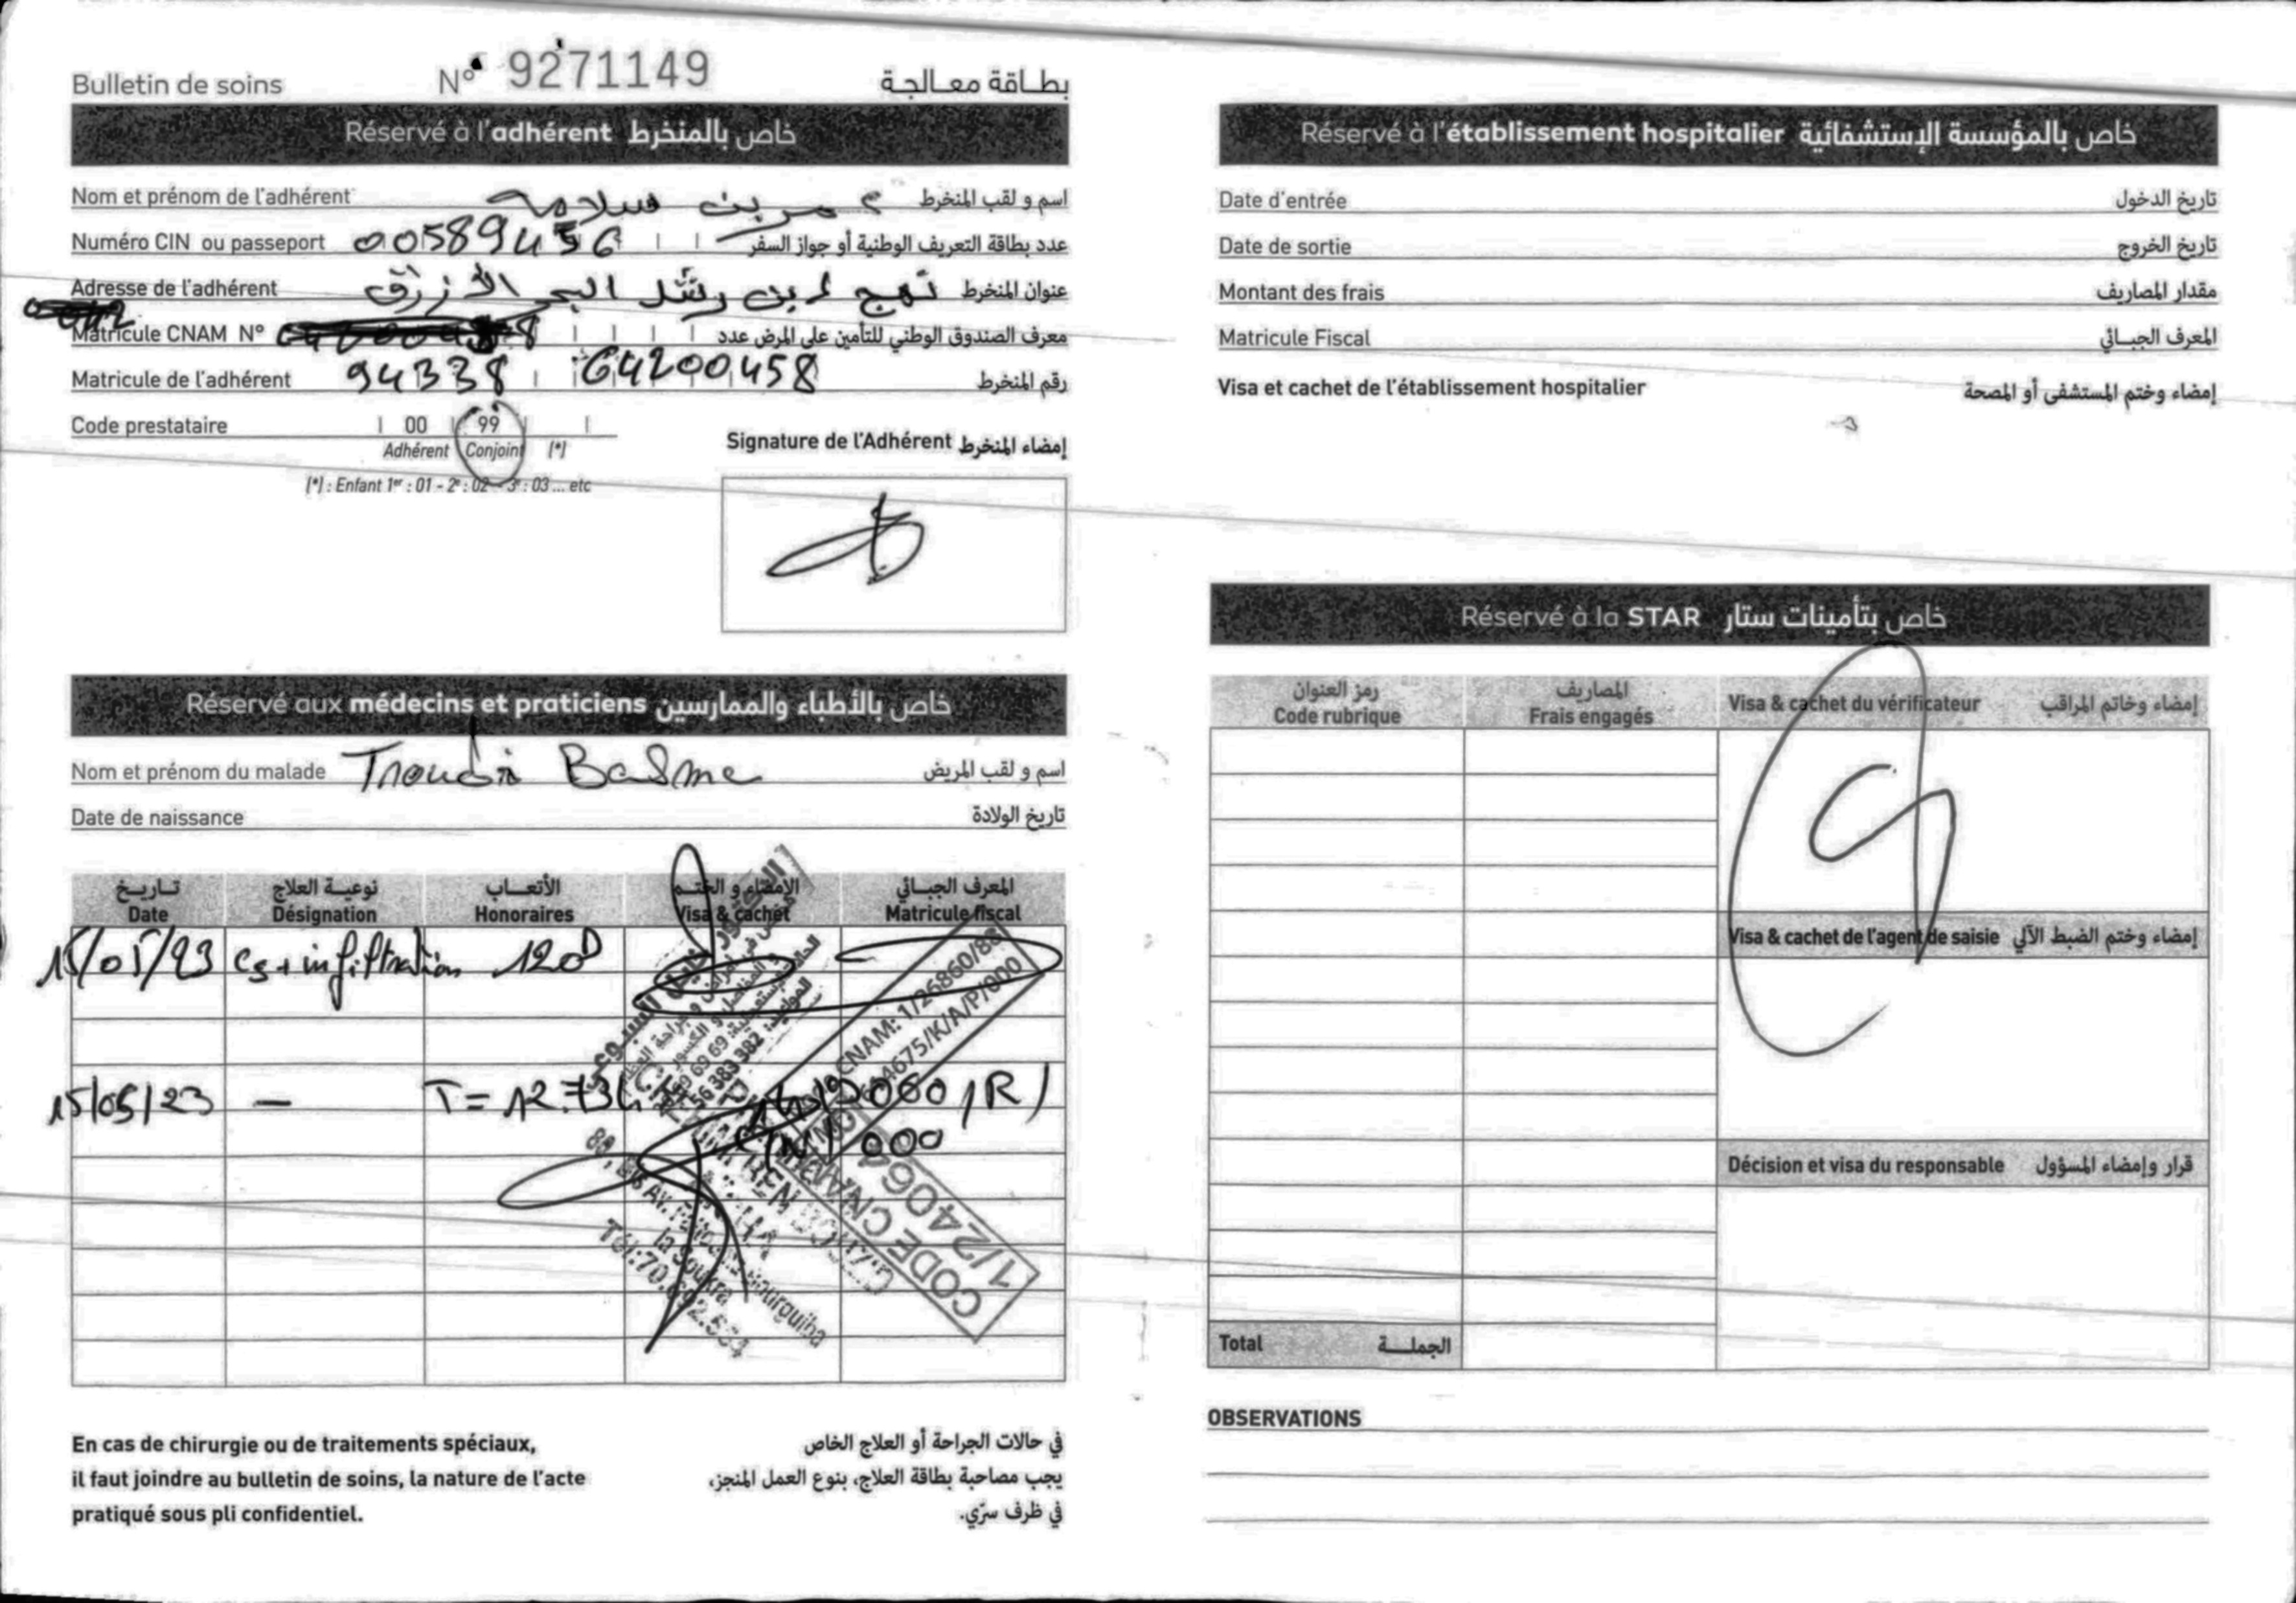 Bulletin de soins N° 9271149 بطاقة معالجة
Réservé à l'adhérent خاص بالمنخرط
Nom et prénom de l'adhérent عمر بن سلامة اسم و لقب المنخرط
Numéro CIN ou passeport 00589456 عدد بطاقة التعريف الوطنية أو جواز السفر
Adresse de l'adhérent نهج ابن رشد البحر الأزرق عنوان المنخرط
Matricule CNAM N° معرف الصندوق الوطني للتأمين على المرض عدد
Matricule de l'adhérent 94338 64200458 رقم المنخرط
Code prestataire 00 99
Adhérent Conjoint (*)
(*) : Enfant 1er : 01 - 2e : 02 - 3e : 03 ... etc
Signature de l'Adhérent إمضاء المنخرط
Réservé aux médecins et praticiens خاص بالأطباء والممارسين
Nom et prénom du malade Basma اسم و لقب المريض
Date de naissance تاريخ الولادة
تاريخ نوعية العلاج الأتعاب الإمضاء و الختم المعرف الجبائي
Date Désignation Honoraires Visa & cachet Matricule fiscal
15/05/23 Cs + infiltration 120D
15/05/23 — T = 12.734
000
CNAM: 1/26860/88
K/A/P/000
CODE CNAM
1/24064
Bourguiba
la Soukra
En cas de chirurgie ou de traitements spéciaux,
il faut joindre au bulletin de soins, la nature de l'acte
pratiqué sous pli confidentiel.
في حالات الجراحة أو العلاج الخاص
يجب مصاحبة بطاقة العلاج، بنوع العمل المنجز،
في ظرف سرّي.
Réservé à l'établissement hospitalier خاص بالمؤسسة الإستشفائية
Date d'entrée تاريخ الدخول
Date de sortie تاريخ الخروج
Montant des frais مقدار المصاريف
Matricule Fiscal المعرف الجبائي
Visa et cachet de l'établissement hospitalier إمضاء وختم المستشفى أو المصحة
Réservé à la STAR خاص بتأمينات ستار
رمز العنوان المصاريف
Code rubrique Frais engagés Visa & cachet du vérificateur إمضاء وخاتم المراقب
Visa & cachet de l'agent de saisie إمضاء وختم الضبط الآلي
Décision et visa du responsable قرار وإمضاء المسؤول
Total الجملة
OBSERVATIONS